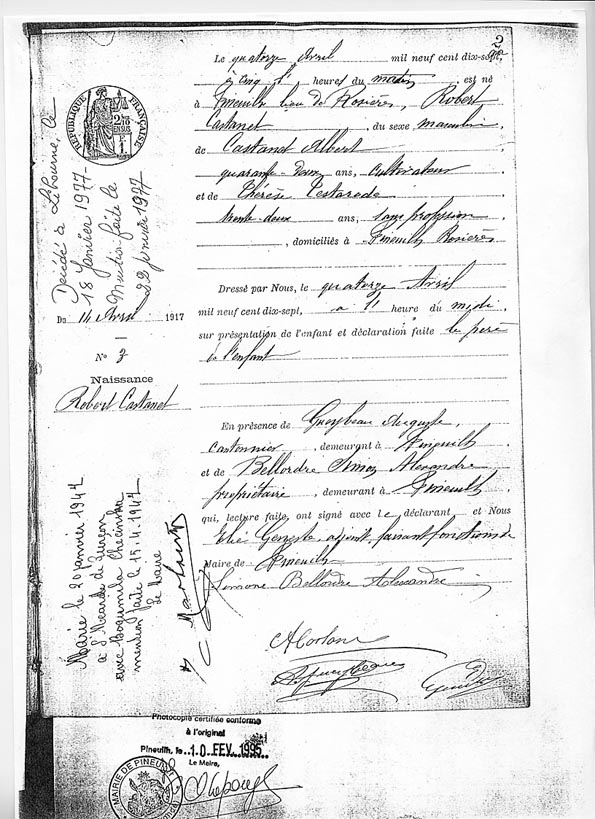 2
Le quatorze Avril mil neuf cent dix-sept,
à cinq heures du matin est né
à Pineuilh lieu de Rosières, Robert
Castanet, du sexe masculin,
de Castanet Albert
quarante-deux ans, cultivateur
et de Thérèse Testarode
trente-deux ans, sans profession
, domiciliés à Pineuilh Rosières
Dressé par Nous, le quatorze Avril
mil neuf cent dix-sept, à 1 heure du midi
sur présentation de l'enfant et déclaration faite le père
de l'enfant
En présence de Auguste,
Cantonnier, demeurant à Pineuilh
et de Bellordre Simon Alexandre
propriétaire, demeurant à Pineuilh
qui, lecture faite, ont signé avec le déclarant et Nous
Elie Geneste, adjoint, faisant fonctions de
Maire de Pineuilh
Simone Bellordre Alexandre
REPUBLIQUE FRANÇAISE
Décédé à Libourne, le
18 Janvier 1977
Mention faite le
22 janvier 1977
Du 14 Avril 1917
N° 3
Naissance
Robert Castanet
Marié le 20 janvier 1947
à St Méard de Gurçon
avec Bogumila Checinska
mention faite le 15.4.1947
Le Maire
Photocopie certifiée conforme
à l'original
Pineuilh, le 10 FEV. 1995
Le Maire,
MAIRIE DE PINEUILH